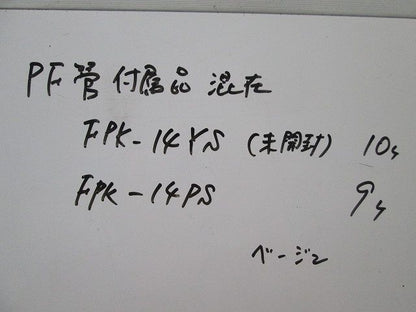 PF管付属品混在
FPK-14YS (未開封) 10ケ
FPK-14PS 9ケ
ベージュ